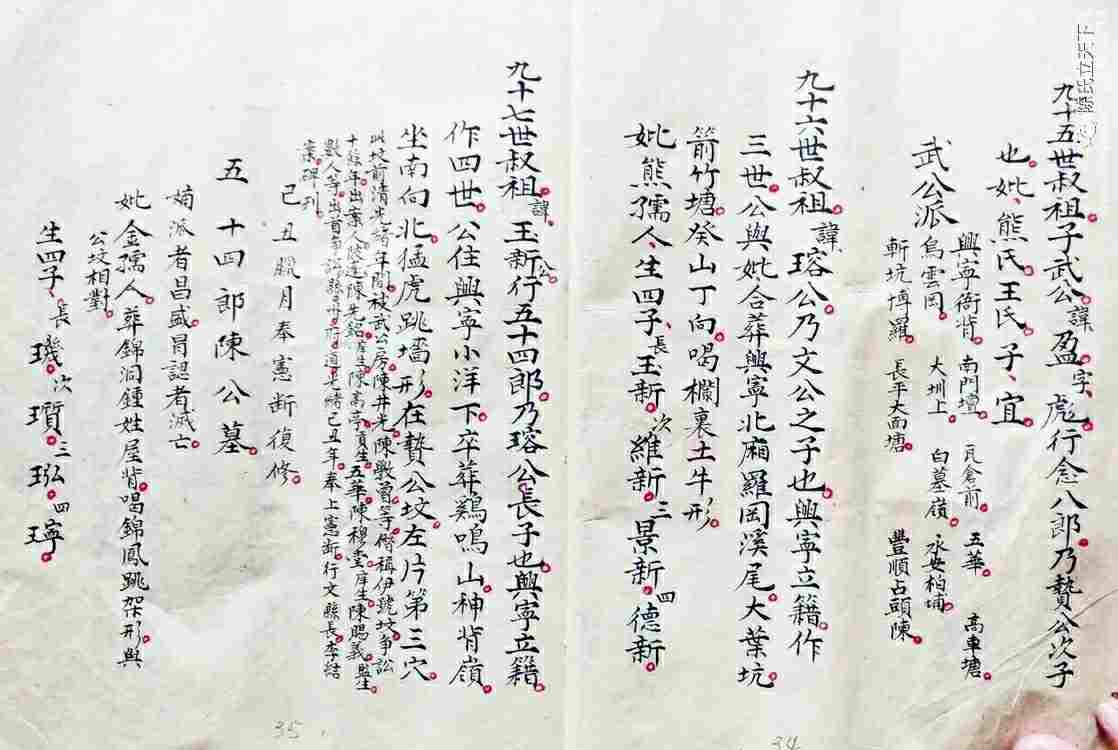 九十五世叔祖子武公諱盈字彪行念八郎乃贄公次子
也。妣熊氏王氏子、宜
武公派
興寧衙背 南門壇 瓦倉前 五華 高車塘
烏雲岡 大圳上 白墓嶺 永安柏埔
斬坑博羅 長平大面塘 豐順占頭陳
九十六世叔祖諱瑢公乃文公之子也興寧立籍作
三世公與妣合葬興寧北廂羅岡溪尾大葉坑
箭竹塘癸山丁向喝欄裏土牛形
妣熊孺人、生四子、長玉新次維新三景新四德新
九十七世叔祖諱玉新公行五十四郎乃瑢公長子也興寧立籍
作四世公住興寧小洋下卒葬鷄鳴山神背嶺
坐南向北猛虎跳墻形在贄公坟左片第三穴
此坟前清光緒年間被武公房陳井光陳敷首等偕稱伊號坟爭訟
十餘年出案人陵達陳先銘庠生陳高亭貢生五華陳穆堂庠生陳賜義監生
數人等出首
光緒己丑年奉上憲斷行文縣長李結
案碑刊
己丑臘月奉憲斷復修
五十四郎陳公墓
嫡派者昌盛冒認者滅亡
妣金孺人葬錦洞鍾姓屋背唱錦鳳跳架形與
公坟相對
生四子、長璣次瓆三璓四㻴
35
34